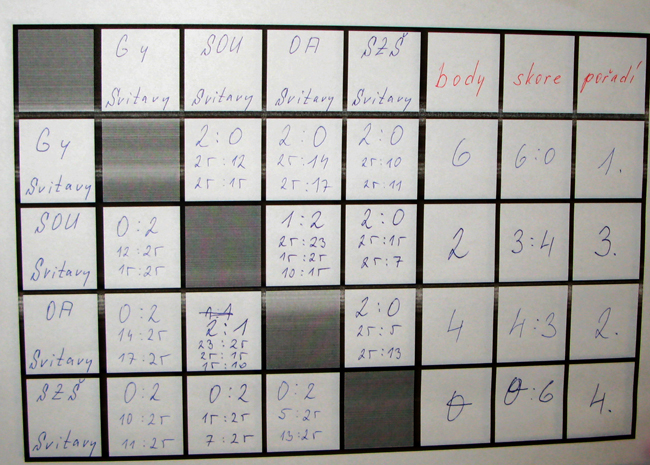 Gy SOU OA SZŠ
Svitavy Svitavy Svitavy Svitavy body skore pořadí
Gy 2:0 2:0 2:0
25:12 25:14 25:10 6 6:0 1.
Svitavy 25:15 25:17 25:11
SOU 0:2 1:2 2:0
12:25 25:23 25:15 2 3:4 3.
Svitavy 15:25 15:25 25:7
10:15
OA 0:2 2:1 2:0
14:25 23:25 25:5 4 4:3 2.
Svitavy 17:25 25:15 25:13
15:10
SZŠ 0:2 0:2 0:2
10:25 15:25 5:25 0 0:6 4.
Svitavy 11:25 7:25 13:25